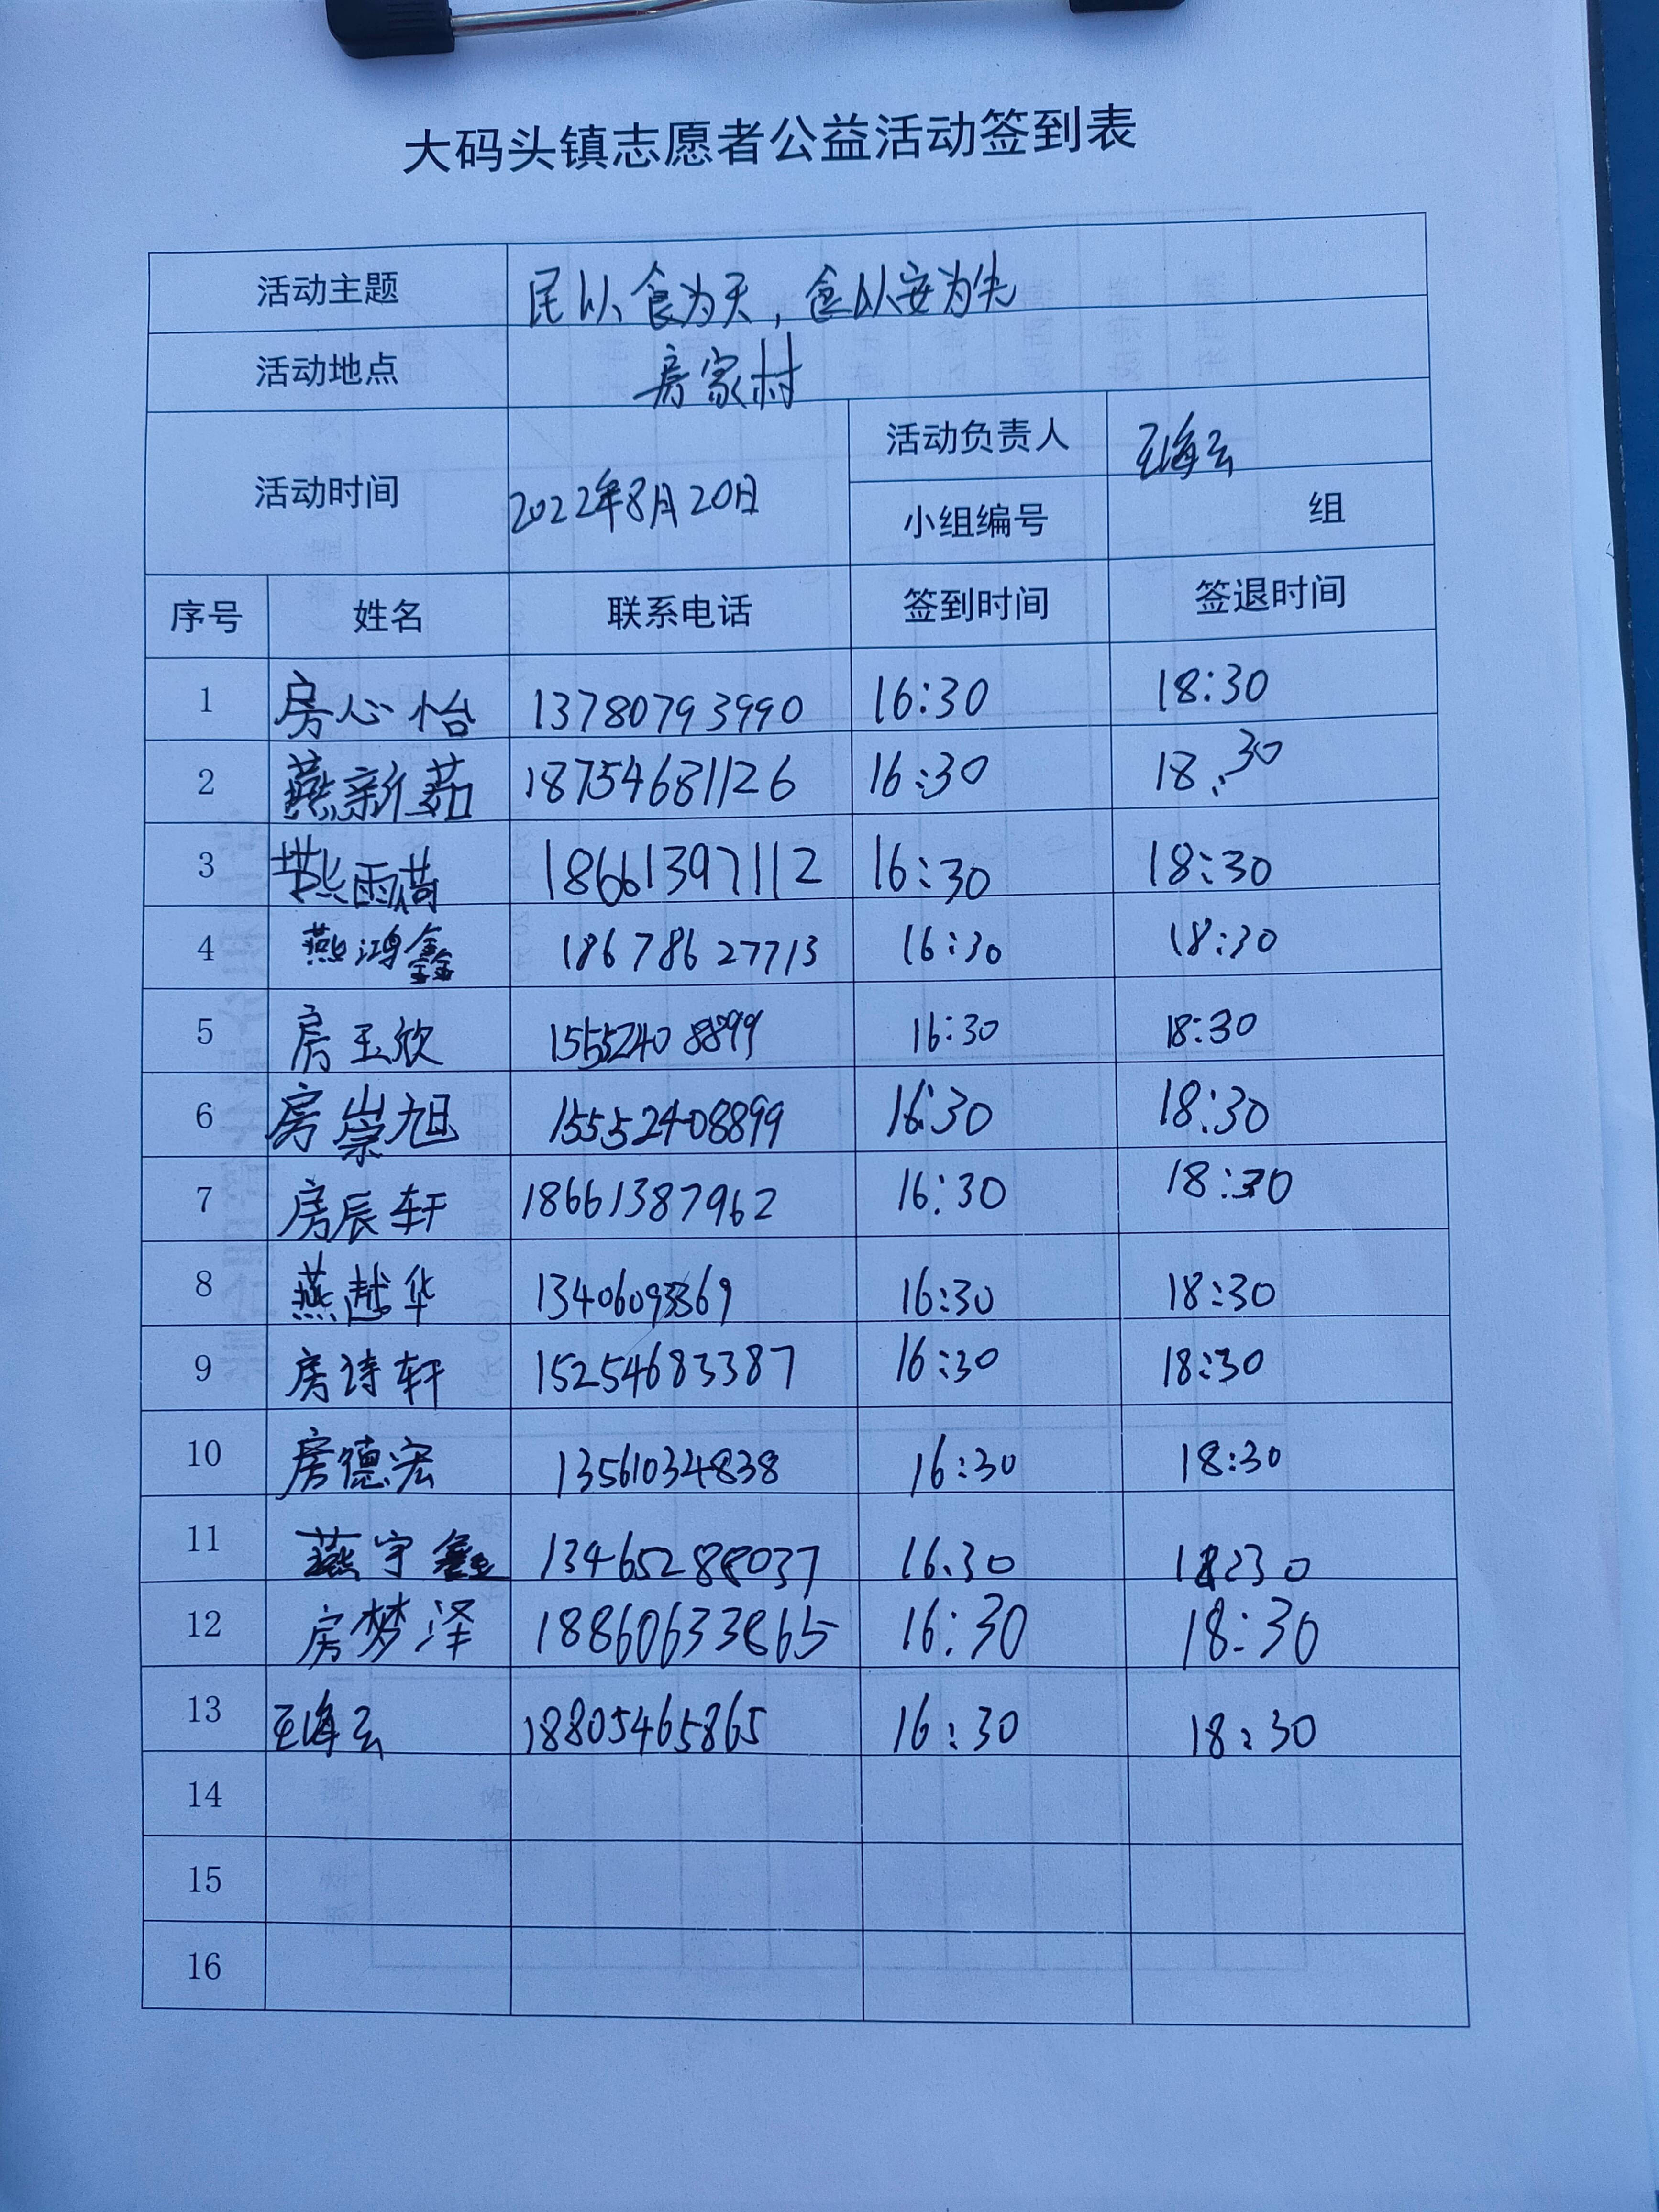 大码头镇志愿者公益活动签到表
活动主题 民以食为天，食以安为先
活动地点 房家村
活动时间 2022年8月20日 活动负责人 王海云
小组编号 组
序号 姓名 联系电话 签到时间 签退时间
1 房心怡 13780793990 16:30 18:30
2 燕新茹 18754681126 16:30 18:30
3 燕雨荷 18661397112 16:30 18:30
4 燕鸿鑫 18678627713 16:30 18:30
5 房玉欣 15552408899 16:30 18:30
6 房崇旭 15552408899 16:30 18:30
7 房辰轩 18661387962 16:30 18:30
8 燕越华 16:30 18:30
9 房诗轩 15254683387 16:30 18:30
10 房德宏 13561034838 16:30 18:30
11 燕宇鑫 13465288037 16:30 18:30
12 房梦泽 18860633865 16:30 18:30
13 王海云 18805465865 16:30 18:30
14
15
16